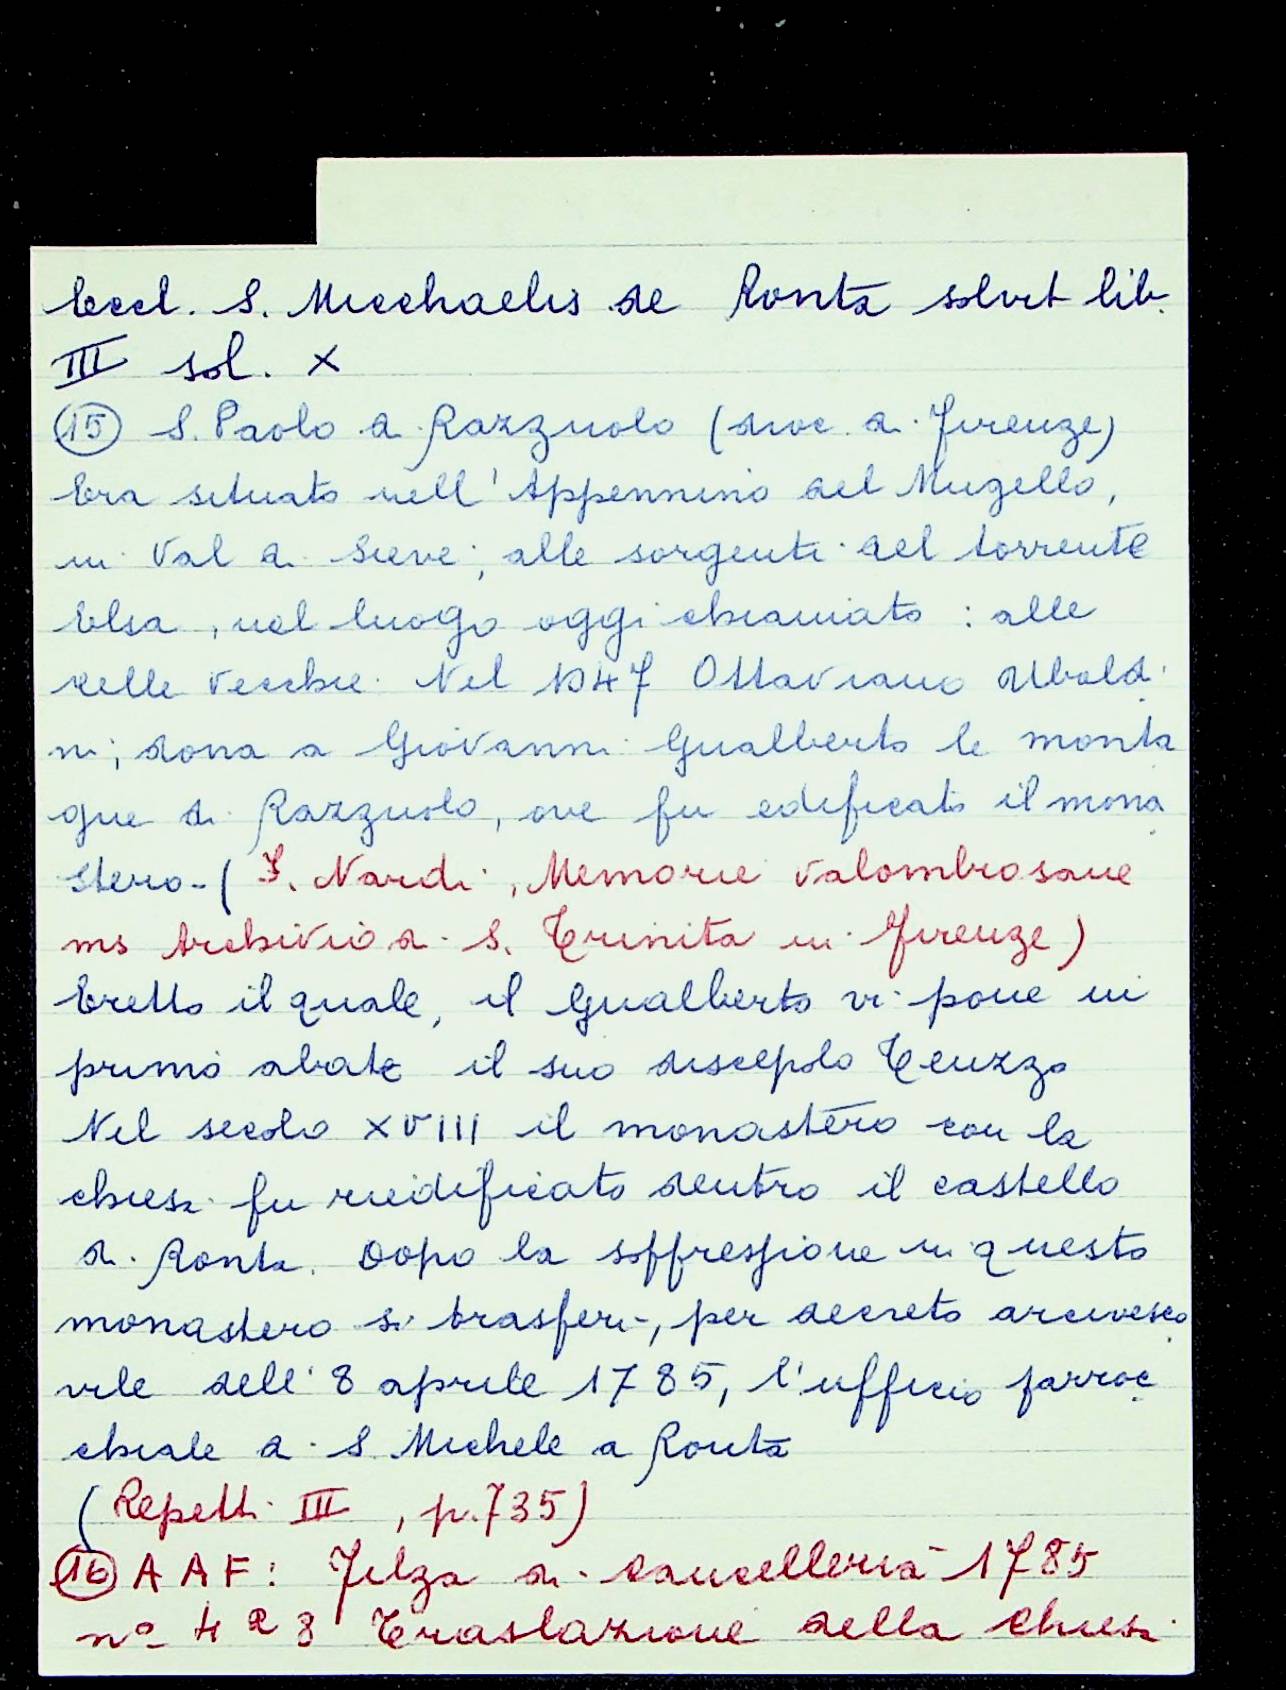 Eccl. S. Micchaelis de Ronta solvit lib.
III sol. X
15 S. Paolo di Razzuolo (dioc. di Firenze)
Era situato nell'Appennino del Mugello,
in Val di Sieve, alle sorgenti del torrente
Elsa, nel luogo oggi chiamato: alle
celle vecchie. Nel 1047 Ottaviano Ubaldi
ni, dona a Giovanni Gualberto le monta
gne di Razzuolo, ove fu edificato il mona
stero - (F. Nardi, Memorie Valombrosane
ms Archivio di S. Trinita in Firenze)
Eretto il quale, il Gualberto vi pone in
primo abate il suo discepolo Teuzzo
Nel secolo XVIII il monastero con la
chiesa fu riedificato dentro il castello
di Ronta. Dopo la soffressione di questo
monastero si trasferì, per decreto arcivesco
vile dell'8 aprile 1785, l'ufficio parroc
chiale a S. Michele a Ronta
(Repetti III, p. 735)
16 A A F: Filza di cancelleria 1785
n° 428 Traslazione della chiesa